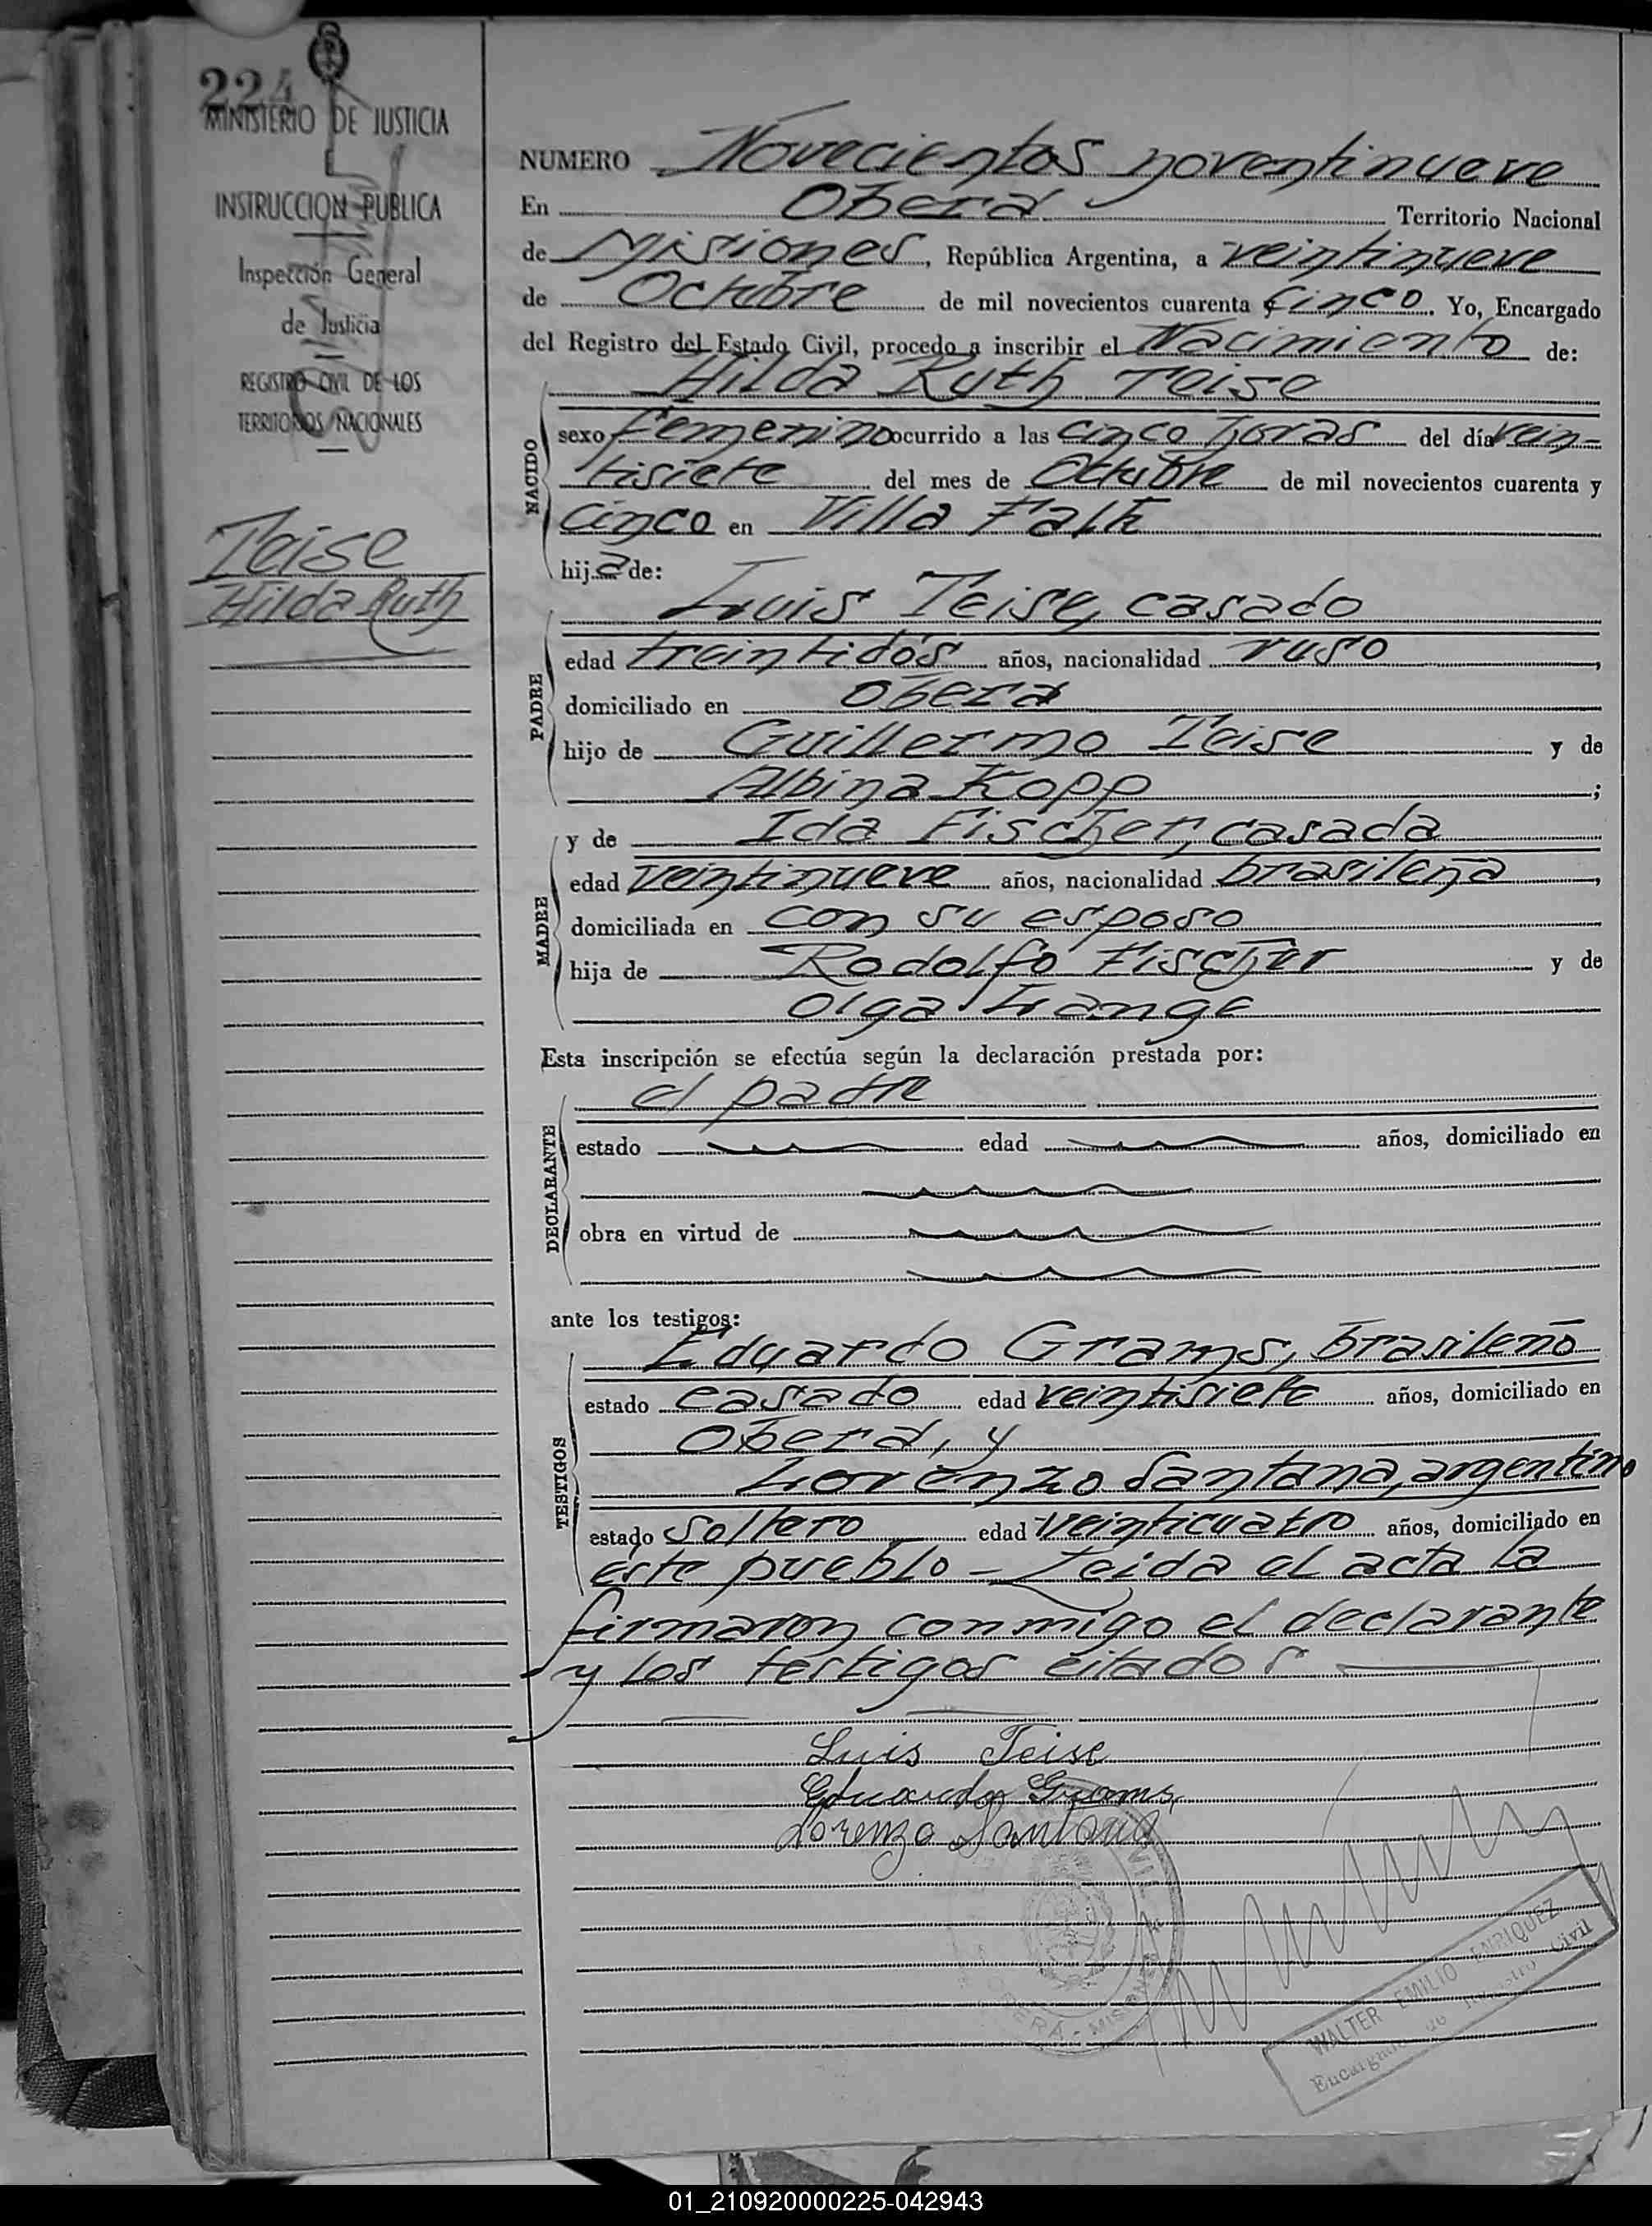 224
MINISTERIO DE JUSTICIA
E
INSTRUCCION PUBLICA
Inspección General
de Justicia
REGISTRO CIVIL DE LOS
TERRITORIOS NACIONALES
Teise
Hilda Ruth
NUMERO Novecientos noventinueve
En Oberá Territorio Nacional
de Misiones, República Argentina, a veintinueve
de Octubre de mil novecientos cuarenta y cinco. Yo, Encargado
del Registro del Estado Civil, procedo a inscribir el Nacimiento de:
NACIDO
Hilda Ruth Teise
sexo femenino ocurrido a las cinco horas del día vein-
tisiete del mes de Octubre de mil novecientos cuarenta y
cinco en Villa Falk
hija de:
PADRE
Luis Teise, casado
edad treintidós años, nacionalidad ruso,
domiciliado en Oberá
hijo de Guillermo Teise y de
Albina Kopp;
MADRE
y de Ida Fischer, casada
edad veintinueve años, nacionalidad brasileña,
domiciliada en con su esposo
hija de Rodolfo Fischer y de
Olga Lange
Esta inscripción se efectúa según la declaración prestada por:
DECLARANTE
el padre
estado edad años, domiciliado en
obra en virtud de
ante los testigos:
TESTIGOS
Eduardo Grams, brasileño
estado casado edad veintisiete años, domiciliado en
Oberá, y
Lorenzo Santana, argentino
estado soltero edad veinticuatro años, domiciliado en
este pueblo - Leida el acta la
firmaron conmigo el declarante
y los testigos citados
Luis Teise
Eduardo Grams
Lorenzo Santana
WALTER EMILIO ENRIQUEZ
Encargado de Registro Civil
01_210920000225-042943